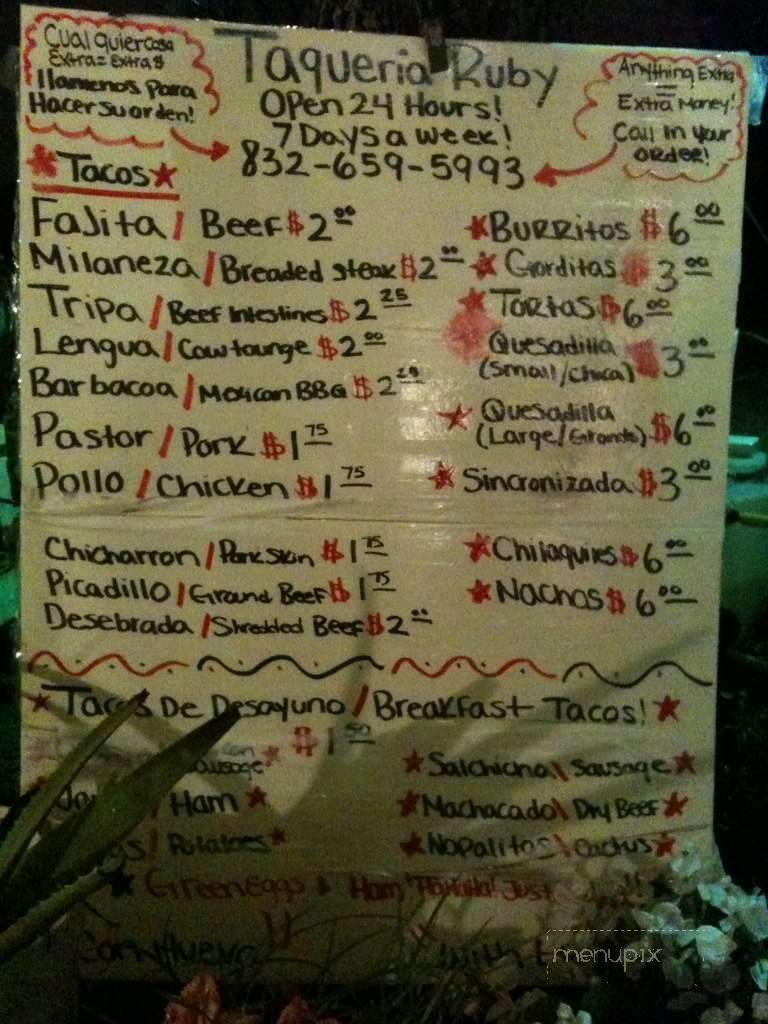 Cualquiercosa
Extra = Extra $
llamenos Para
Hacer su orden!
Taqueria Ruby
Open 24 Hours!
7 Days a week!
832-659-5993
Anything Extra
=
Extra Money!
Call in Your
ordeer!
Tacos
Fajita / Beef $2 00
Milaneza / Breaded steak $2 00
Tripa / Beef Intestines $2 25
Lengua / Cow tounge $2 00
Barbacoa / Mexican BBQ $2
Pastor / Pork $1 75
Pollo / Chicken $1 75
Chicharron / Pork Skin $1 75
Picadillo / Ground Beef $1 75
Desebrada / Shredded Beef $2 00
Burritos $6 00
Gorditas $3 00
Tortas $6 00
Quesadilla
(small/chica) $3 00
Quesadilla
(Large/Grande) $6 00
Sincronizada $3 00
Chilaquiles $6 00
Nachos $6 00
Tacos De Desayuno / Breakfast Tacos!
$1 50
sausage
/ Ham
/ Potatoes
Salchicha \ Sausage
Machacado \ Dry Beef
Nopalitos \ Cactus
Green Eggs & Ham Just
With
menupix